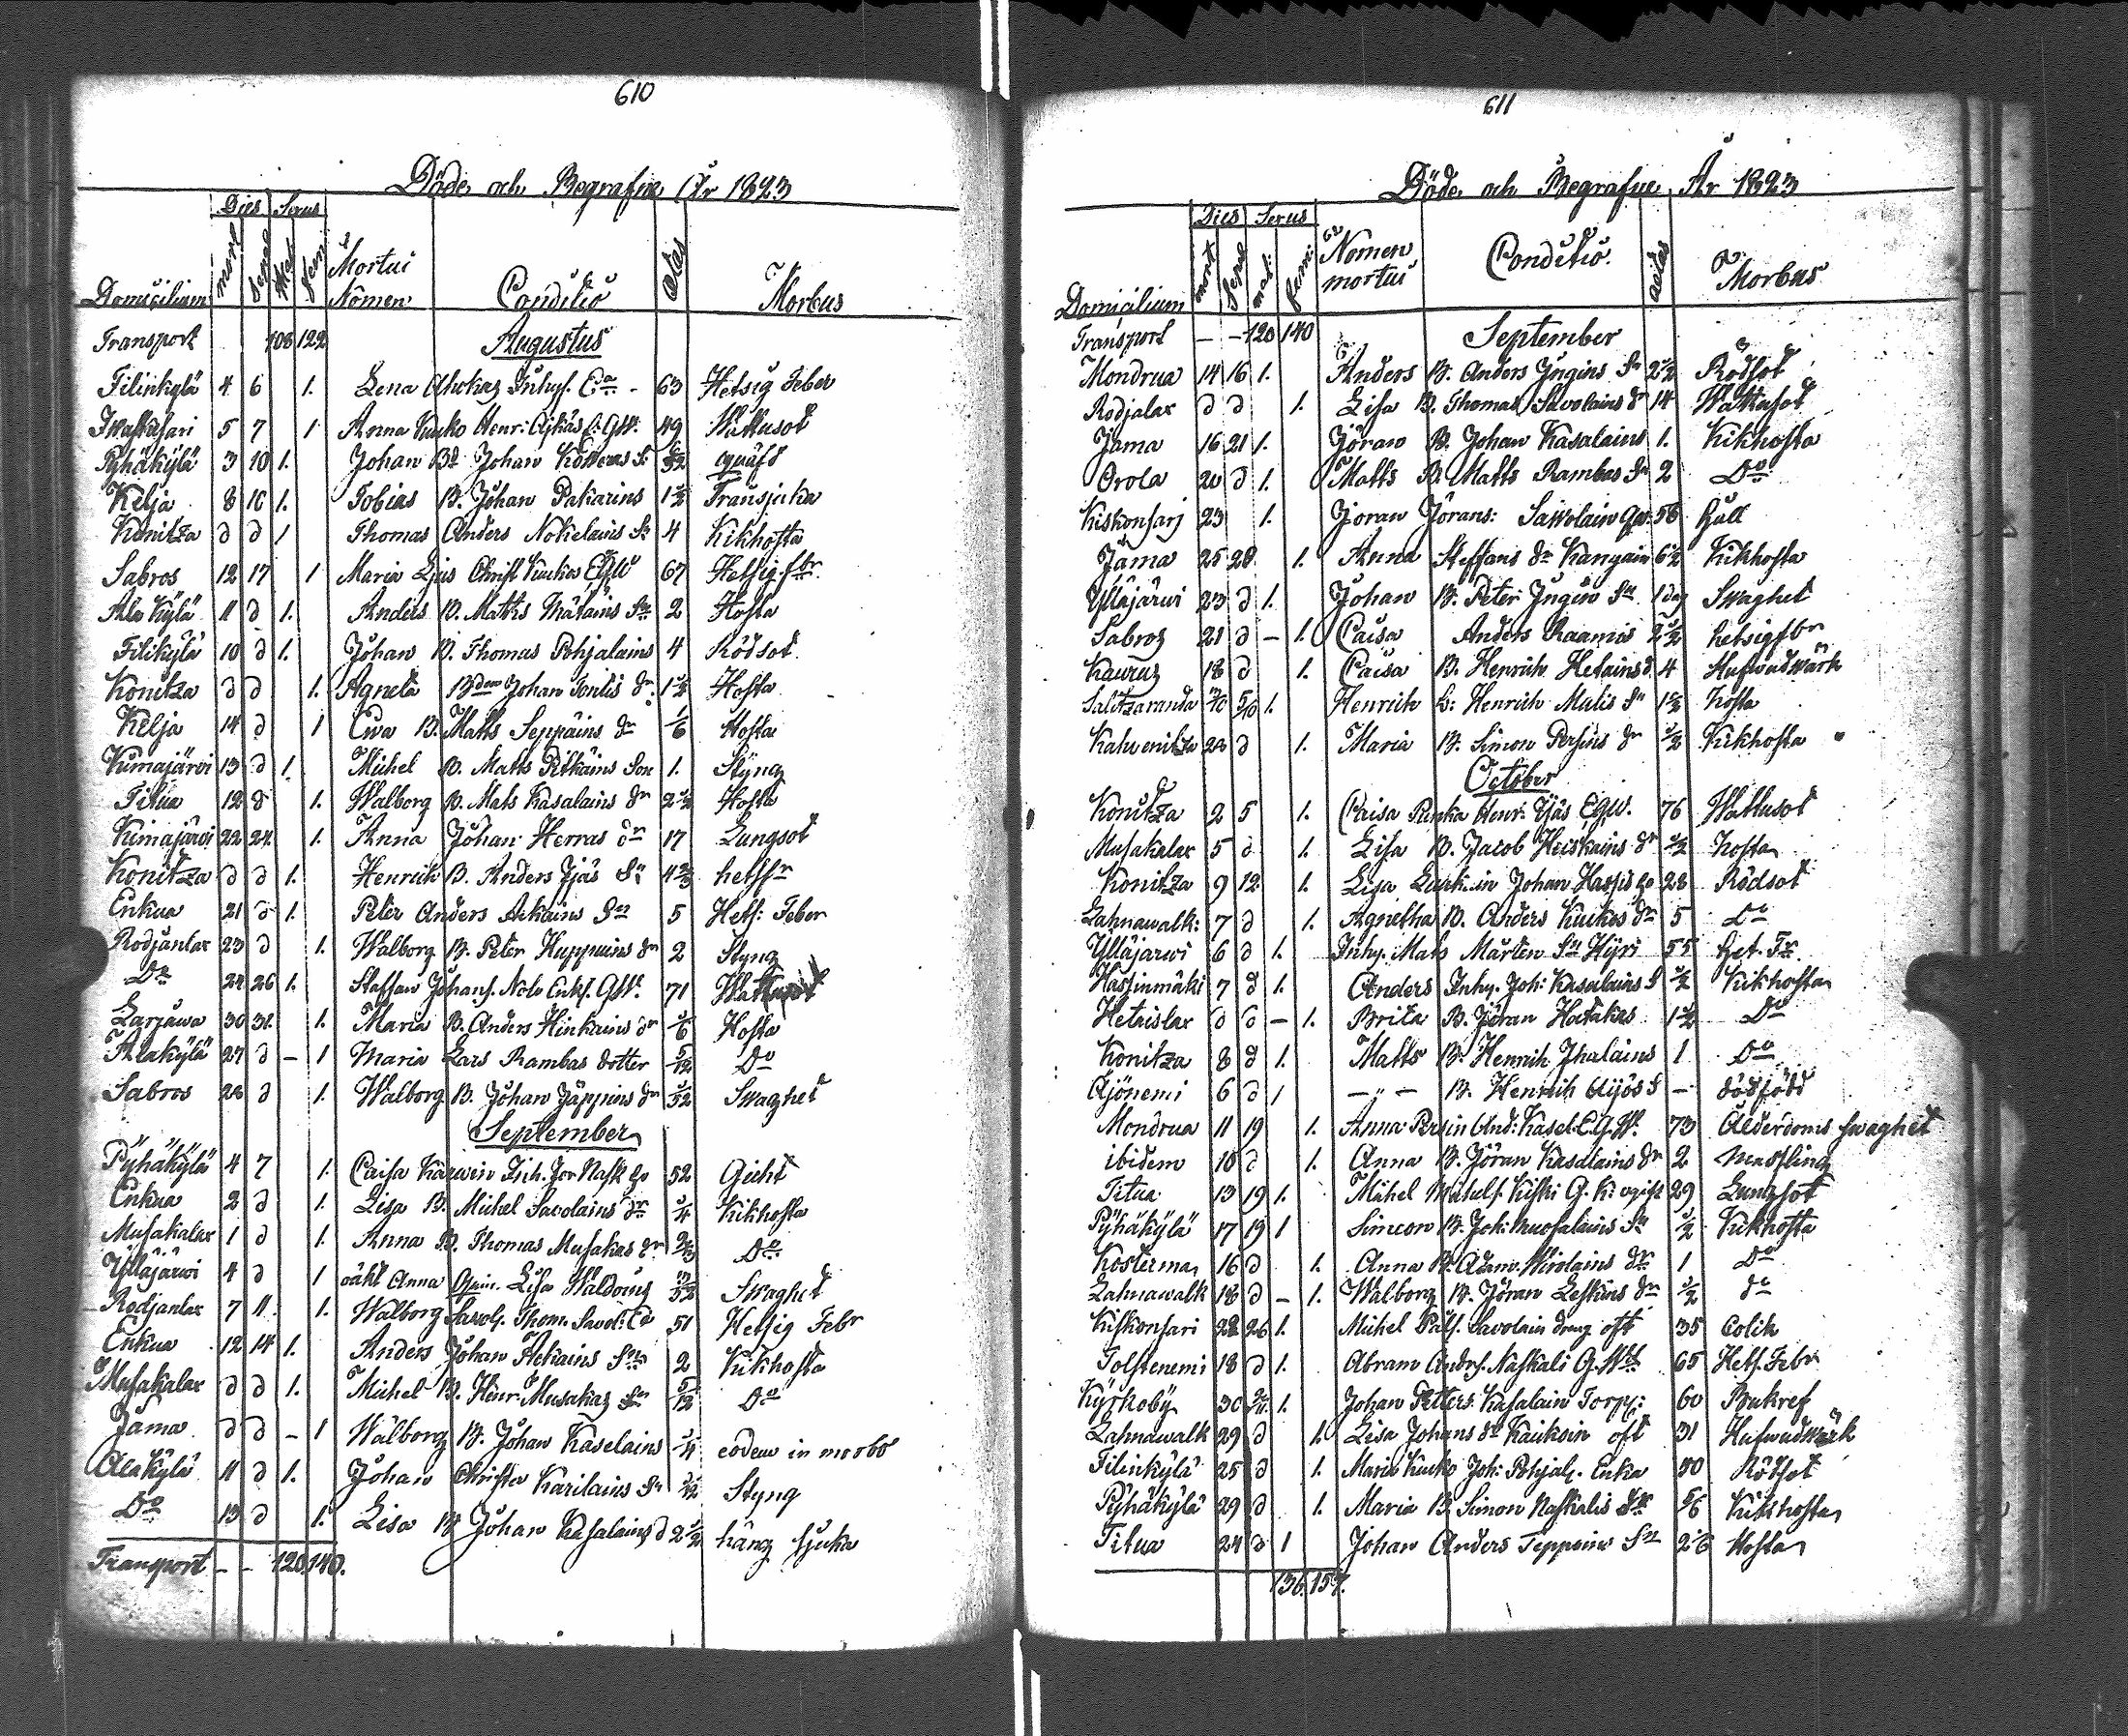 610
Döde och Begrafne År 1823
Dies Sexus
Domicilium mort Sepul Mas Fem Mortui Nomen Conditio Ætas Morbus
Transport 108 122 Augustus
Filinkylä 4 6 1. Lena Inhys. 63 Hetsig Feber
5 7 1 Anna Kuko Henr: 49 Wattusot
Pyhäkylä 3 10 1. Johan Bd Johan Sn
Kelja 8 10 1. Tobias B. Johan Pakarins 1 1/2 Transjuka
Konitza d d 1 Thomas Anders Nokelains Sn 4 Kikhosta
Sabros 12 17 1 Maria Christ Kuckos 67 Hetsig fbr
Ala Kylä 11 d 1. Anders B. Matts Mätäins Sn 2 Hosta
Filikylä 10 d 1. Johan B. Thomas Pohjalains 4 Rödsot
Konitza d d 1. Agneta Bden Johan Tontis dr. 1 1/2 Hosta
Kelja 14 d 1 Ewa B. Matts Seppäins dr 1/6 Hosta
Kimajärvi 13 d 1. Michel B. Matts Pitkäins Son 1. Styng
Titua 12 d 1. Walborg B. Mats Kasalains dr 2 1/2 Hosta
Kimajärvi 22 24. 1. Anna Johan Herras dr 17 Lungsot
Konitza d d 1. Henrich B. Anders Jjäs Sn
Enkua 21 d 1. Peter Anders Askains Sn 5 Hets: Feber
Rodjanlax 23 d 1. Walborg B. Peter Huppuins dr 2 Styng
Do 24 26 1. Staffan Johans. 71 Wattusot
Larjawa 30 31. 1. Maria B. Anders Hinkains dr 1/6 Hosta
Alakylä 27 d – 1 Maria Lars Rambas dotter 5/12 Do
Sabros 28 d 1. Walborg B. Johan Jäppins dr Swaghet
September
Pyhäkylä 4 7 1. Caisa Inh. Jor Nask 52 Gicht
Enkua 2 d 1. Lisa B. Michel Savolains dr 1/4 Kikhosta
Musakalax 1 d 1. Anna B. Thomas Musakas dr Do
Ylläjärwi 4 d 1 oäkt Anna Lisa Swaghet
Rodjanlax 7 11. 1. Walborg Savol. Thom. Savol: 51 Hetsig Febr
Enkua 12 14 1. Anders Johan Askains Sn 2 Kikhosta
Musakalax d d 1. Michel B. Henr. Musakas Sn 5/12 Do
Jama d d – 1 Walborg B. Johan Kaselains 1/4 eodem in morbo
Alakylä 11 d 1. Johan Christer Karilains Sn Styng
Do 13 d 1. Lisa B Johan Kasalains d 2 1/2 häng sjuka
Transport – – 120 140.
611
Döde och Begrafne År 1823
Dies Sexus
Domicilium mort Sepul mas: femi: Nomen mortui Conditio ætas Morbus
Transport – – 120 140 September
Mondrua 14 16 1. Anders B. Anders Jngins Sn 2 1/2 Rödsot
Rodjalax d d 1. Lisa B. Thomas Savolains dr 14 Wattusot
Jama 16 21 1. Jöran B. Johan Kasalains 1. Kikhosta
Orola 20 d 1. Matts B. Matts Rambas Sn 2 Do
Kiskonsarj 23 1. Joran Jörans: Sawolain 56 Håll
Jama 25 28 1. Anna Steffans dr 6 1/2 Kikhosta
Ylläjärwi 23 d 1. Johan B. Peter Jngin Sn 1 dag Swaghet
Sabros 21 d – 1. Caisa Anders Raamis 2 1/2 hetsig fbr
Kauruz 18 d 1. Caisa B. Henrich Hetains d. 4 Hufwudwärk
Salitzaranda 5/10 1. Henrich B: Henrich Mulis Sn hosta
Kahwenitza d 1. Maria B. Simon Persins dr 1/2 Kikhosta
October
Konitza 2 5 1. Caisa Henr. 76 Wattusot
Musakalax 5 d 1. Lisa B. Jacob Heiskains dr 1/2 hosta
Konitza 9 12 1. Lisa Johan 28 Rödsot
Lahnawalk: 7 d 1. Agnetha B. Anders Kuckos dr 5 Do
Ylläjarwi 6 d 1. Inhy. Mats Mårten Sn Hyri 55 het. Fr.
Hassinmäki 7 d 1. Anders Inhy. Joh: Kasalains S 1/2 Kikhosta
Hetaislax d d – 1. Brita B. Jöran Hatakas 1 1/2 Do
Konitza 8 d 1. Matts B. Henrich Jhalains 1 Do
Ajönemi 6 d 1 – „ – B. Henrich Aijös S – dödfödd
Mondrua 11 19 1. Anna Persin And: Kasel. 73 Ålderdoms swaghet
ibidem 10 d 1. Anna B. Jöran Kasalains dr 2 Messling
Titua 13 19 1. Michel Michels. Kiski ogift 29 Lungsot
Pyhäkylä 17 19 1 Simeon B. Joh: Sn 1/2 Kikhosta
Kosterma 16 d 1. Anna B. Adam Wirolains dr 1 Do
Lahnawalk 18 d – 1. Walborg B. Jöran Leskins dr 1/2 do
Kiskonsari 22 26 1. Michel Påls. Savolain dräng oft 35 Colik
Tolstenemi 18 d 1. Abram Andrs. Naskali 65 Hets. Febr
Kyrkoby 30 1. Johan Petters: Kasalain Torp: 60 Bukref
Lahnawalk 29 d 1. Lisa Johans dr Kaukoin oft 31 Hufwudwärk
Filinkylä 25 d 1. Maria Kucko Joh: Pohjal. Enka 80 Rötsot
Pyhäkylä 29 d 1. Maria B. Simon Naskalis dr 5/6 Kikhosta
Titua 24 d 1 Johan Anders Teppoins Sn Hosta
136. 157.